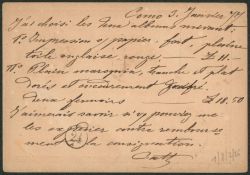 Como 3. Janvier 7/
J'ai choisi les deux albums suivant:
1º Impression s/ papier fort, plaine
toile anglaise rouge. — £ 11.—
11º Plain maroquin, tranche et plat
dorés et
deux fermoirs £ 18.50
J'aimerais savoir si v/ pouvez me
les expédier contre rembourse
ment à la consignation.